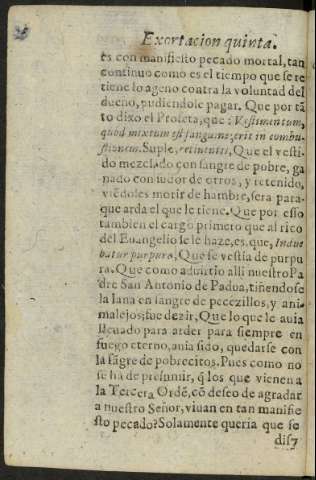 Exortacion quinta.
es con manifiesto pecado mortal, tan
continuo como es el tiempo que se re
tiene lo ageno contra la voluntad del
dueño, pudiendole pagar. Que por tā
to dixo el Profeta, que: Vestimentum,
quod mixtum est sanguine, erit in combu-
stionem. Suple, retinentis, Que el vesti-
do mezclado con sangre de pobre, ga
nado con sudor de otros, y retenido,
viēdoles morir de hambre, sera para-
que arda el que le tiene. Que por esso
tambien el cargo primero que al rico
del Euangelio se le haze, es, que, Indue
batur purpura, Que se vestia de purpu
ra. Que como aduirtio alli nuestro Pa
dre San Antonio de Padua, tiñendose
la lana en sangre de pecezillos, y ani-
malejos; fue dezir, Que lo que le auia
lleuado para arder para siempre en
fuego eterno, auia sido, quedarse con
la sāgre de pobrecitos. Pues como no
se ha de presumir, q̃ los que vienen a
la Tercera Ordē, cō deseo de agradar
a nuestro Señor, viuan en tan manifie
sto pecado? Solamente queria que se
dis-